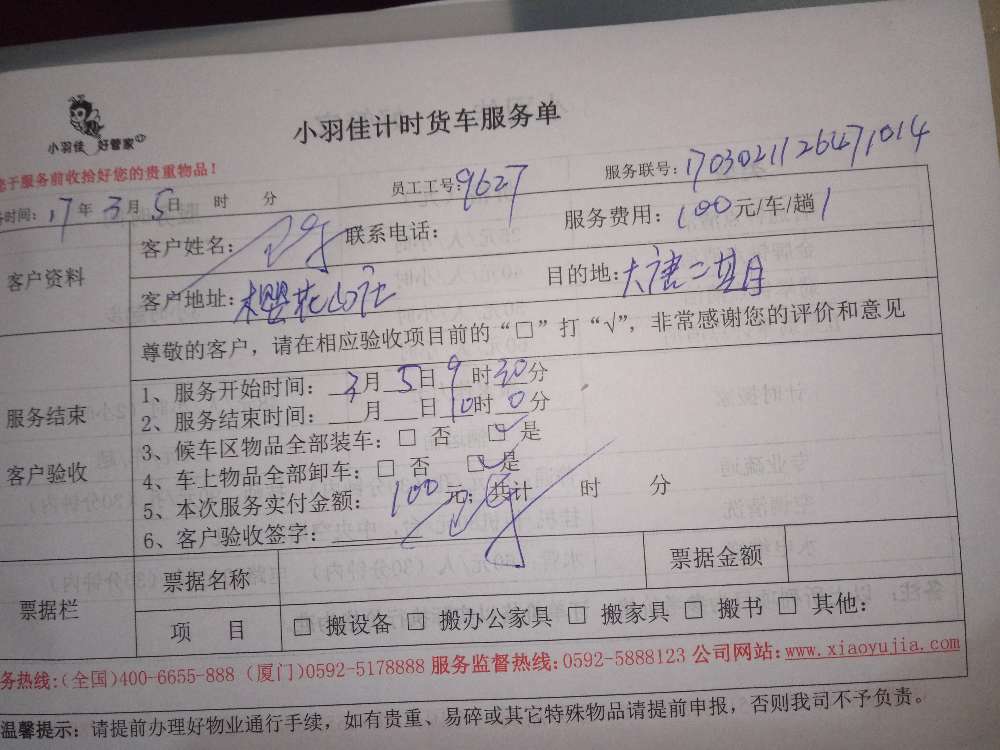 小羽佳 好管家
小羽佳计时货车服务单
于服务前收拾好您的贵重物品!
时间: 17年3月5日 时 分 员工工号: 9627 服务联号: 1703021126471014
客户资料
客户姓名: 联系电话: 服务费用: 100元/车/趟 1
客户地址: 樱花山庄 目的地: 大唐二期
尊敬的客户，请在相应验收项目前的“□”打“√”，非常感谢您的评价和意见
服务结束
客户验收
1、服务开始时间: 3月5日9时30分
2、服务结束时间: 月 日10时0分
3、候车区物品全部装车: □ 否 □ 是
4、车上物品全部卸车: □ 否 □ 是
5、本次服务实付金额: 100元; 共计 时 分
6、客户验收签字:
票据栏
票据名称 票据金额
项 目 □ 搬设备 □ 搬办公家具 □ 搬家具 □ 搬书 □ 其他:
务热线:(全国)400-6655-888 (厦门)0592-5178888 服务监督热线: 0592-5888123 公司网站: www.xiaoyujia.com
温馨提示: 请提前办理好物业通行手续，如有贵重、易碎或其它特殊物品请提前申报，否则我司不予负责。